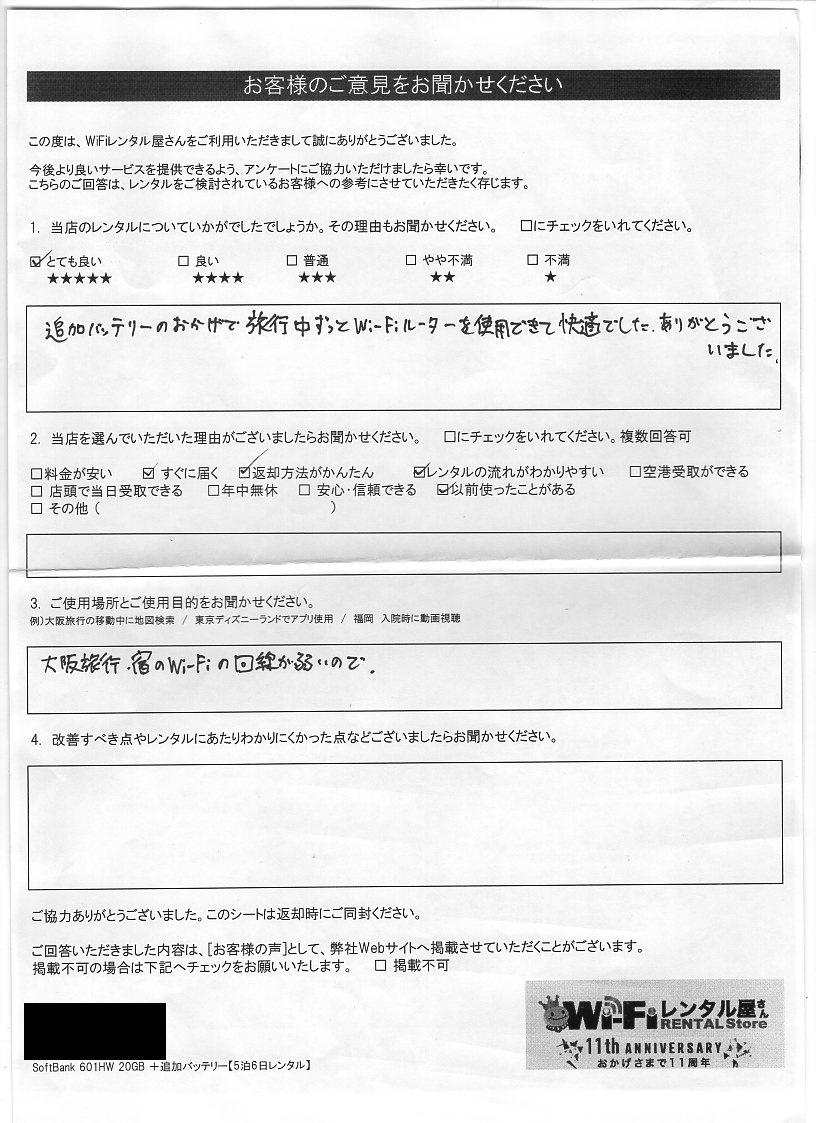 お客様のご意見をお聞かせください
この度は、WiFiレンタル屋さんをご利用いただきまして誠にありがとうございました。
今後より良いサービスを提供できるよう、アンケートにご協力いただけましたら幸いです。
こちらのご回答は、レンタルをご検討されているお客様への参考にさせていただきたく存じます。
1. 当店のレンタルについていかがでしたでしょうか。その理由もお聞かせください。 □にチェックをいれてください。
☑とても良い □ 良い □ 普通 □ やや不満 □ 不満
★★★★★ ★★★★ ★★★ ★★ ★
追加バッテリーのおかげで旅行中ずっとWi-Fiルーターを使用できて快適でした.ありがとうござ
いました.
2. 当店を選んでいただいた理由がございましたらお聞かせください。 □にチェックをいれてください。複数回答可
□料金が安い ☑ すぐに届く ☑返却方法がかんたん ☑レンタルの流れがわかりやすい □空港受取ができる
□ 店頭で当日受取できる □年中無休 □ 安心・信頼できる ☑以前使ったことがある
□ その他 ( )
3. ご使用場所とご使用目的をお聞かせください。
例)大阪旅行の移動中に地図検索 / 東京ディズニーランドでアプリ使用 / 福岡 入院時に動画視聴
大阪旅行.宿のWi-Fiの回線が弱いので.
4. 改善すべき点やレンタルにあたりわかりにくかった点などございましたらお聞かせください。
ご協力ありがとうございました。このシートは返却時にご同封ください。
ご回答いただきました内容は、[お客様の声]として、弊社Webサイトへ掲載させていただくことがございます。
掲載不可の場合は下記へチェックをお願いいたします。 □ 掲載不可
Wi-Fiレンタル屋さん
RENTAL Store
11th ANNIVERSARY
おかげさまで11周年
SoftBank 601HW 20GB +追加バッテリー【5泊6日レンタル】